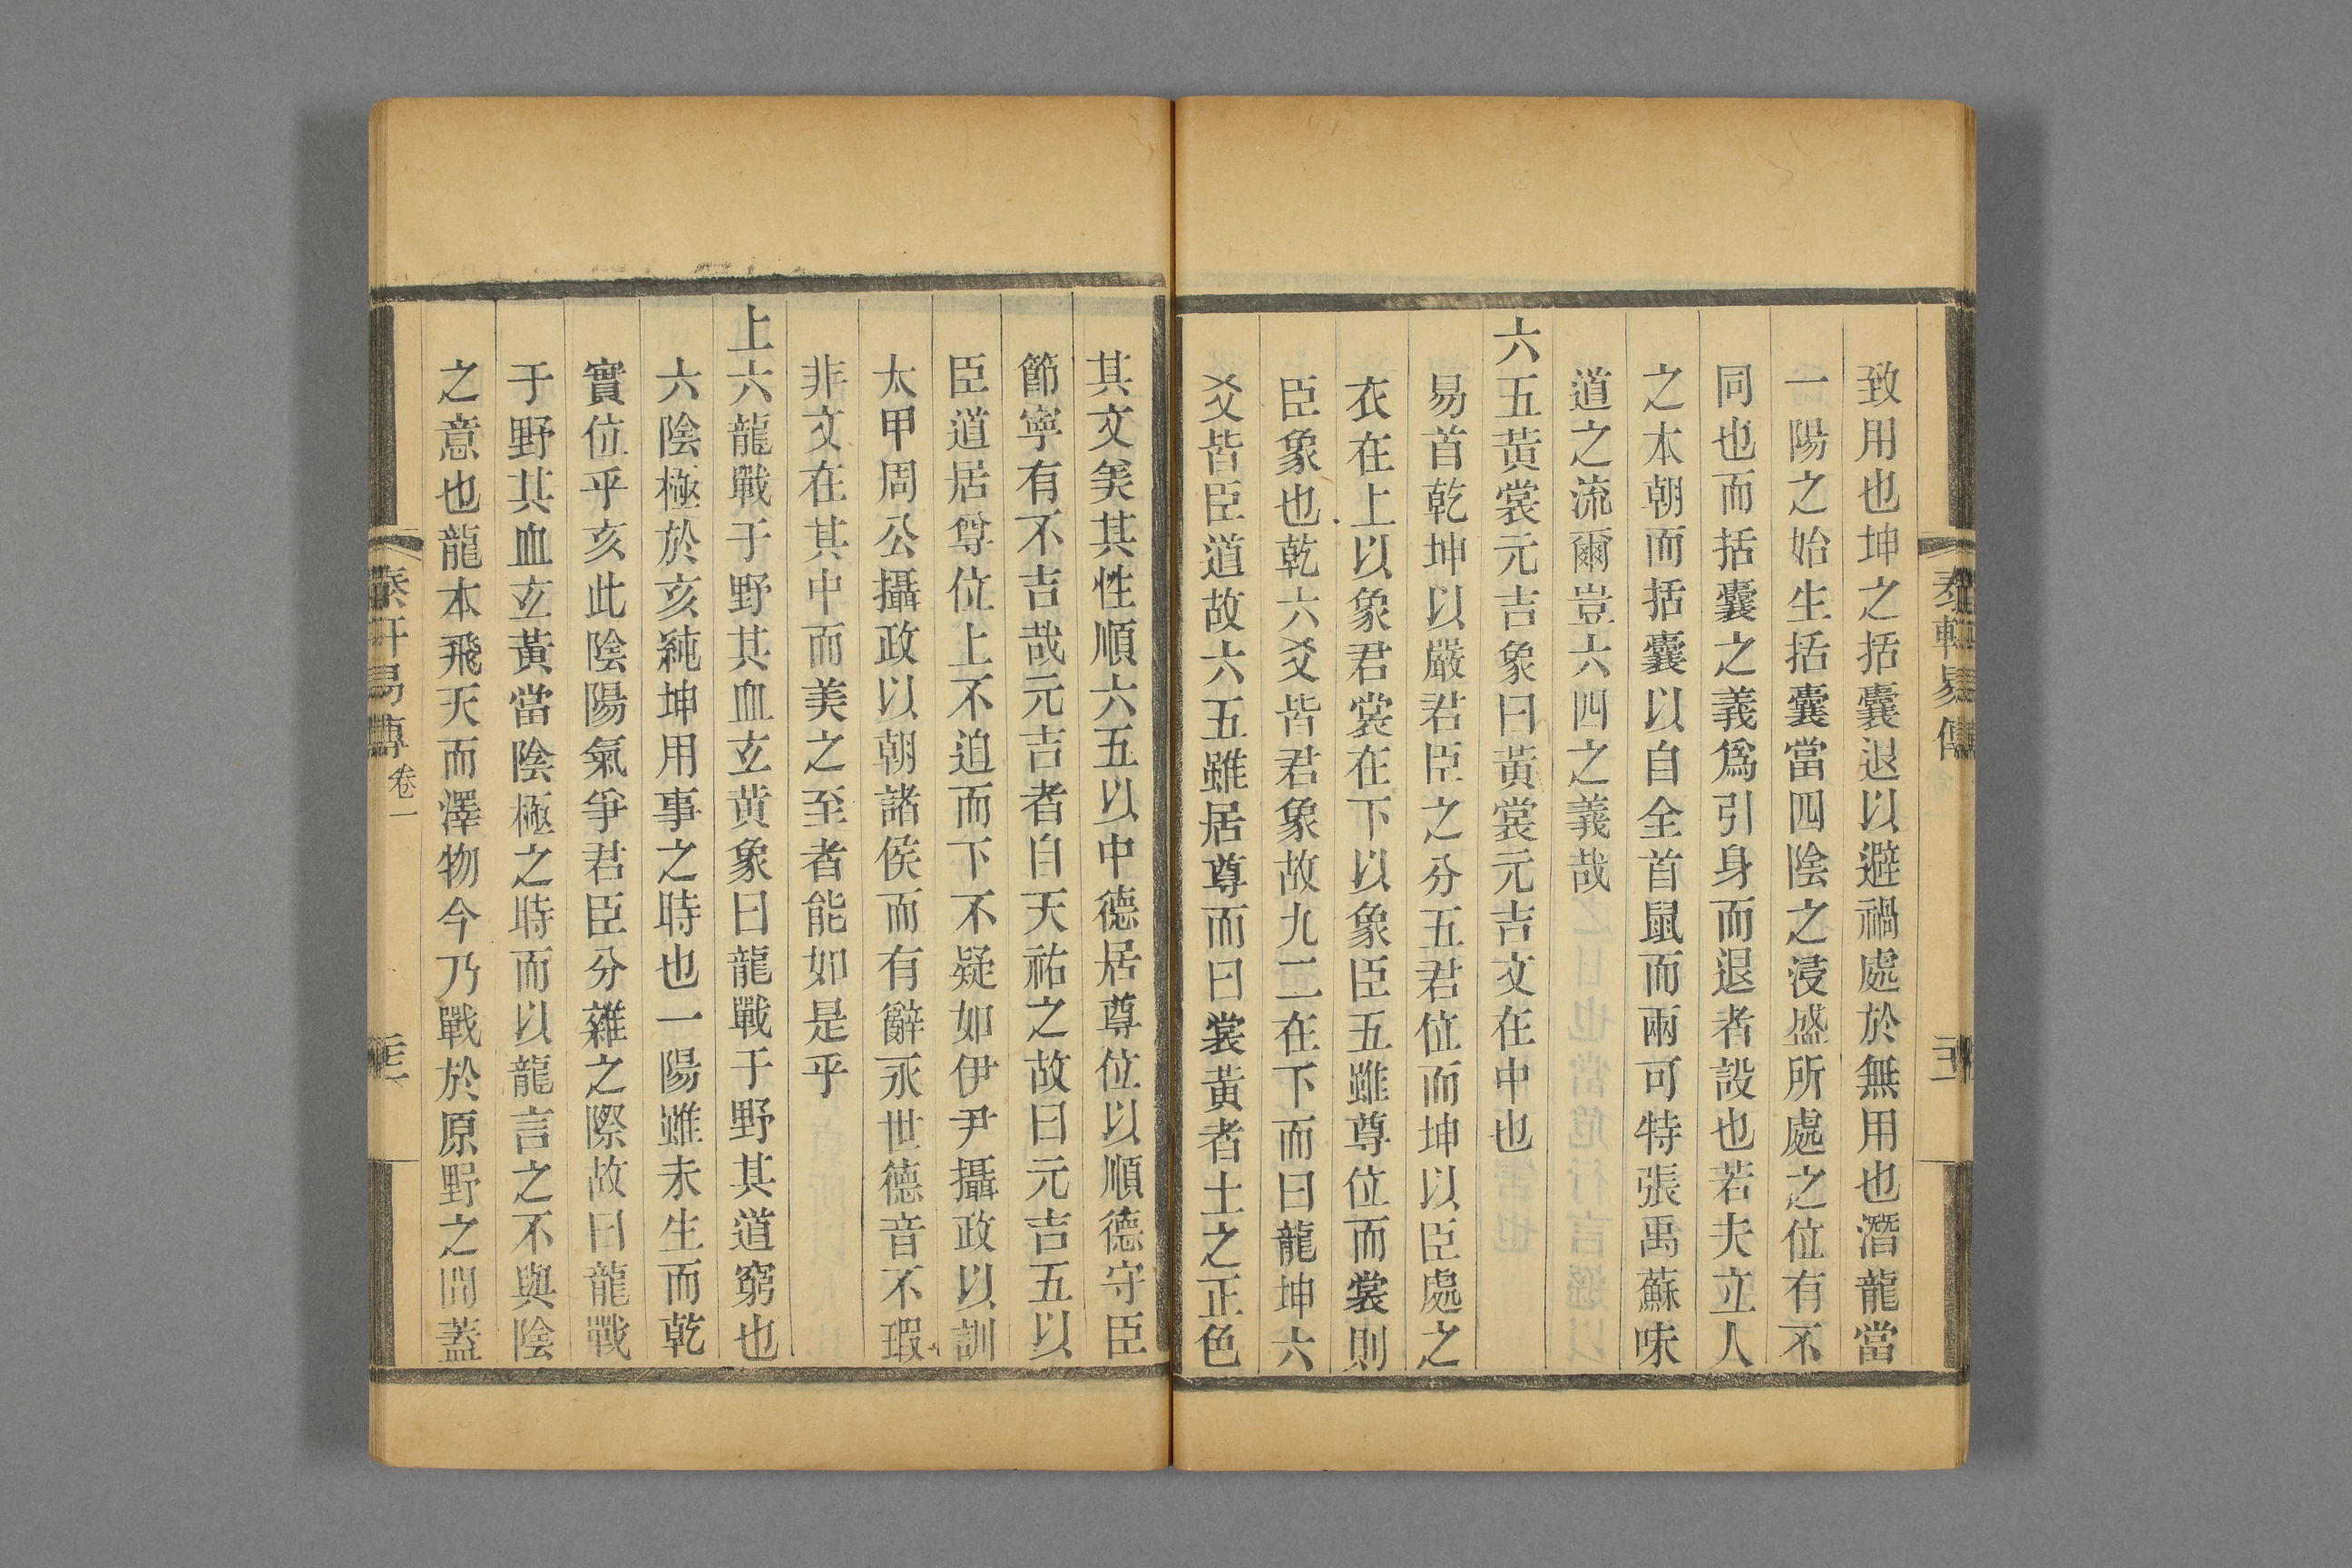 致用也坤之括囊退以避禍處於無用也潛龍當
一陽之始生括囊當四陰之浸盛所處之位有不
同也而括囊之義爲引身而退者設也若夫立人
之本朝而括囊以自全首鼠而兩可特張禹蘇味
道之流爾豈六四之義哉
六五黃裳元吉象曰黃裳元吉文在中也
易首乾坤以嚴君臣之分五君位而坤以臣處之
衣在上以象君裳在下以象臣五雖尊位而裳則
臣象也乾六爻皆君象故九二在下而曰龍坤六
爻皆臣道故六五雖居尊而曰裳黃者土之正色
其文美其性順六五以中德居尊位以順德守臣
節寧有不吉哉元吉者自天祐之故曰元吉五以
臣道居尊位上不迫而下不疑如伊尹攝政以訓
太甲周公攝政以朝諸侯而有辭永世德音不瑕
非文在其中而美之至者能如是乎
上六龍戰于野其血玄黃象曰龍戰于野其道窮也
六陰極於亥純坤用事之時也一陽雖未生而乾
實位乎亥此陰陽氣爭君臣分雜之際故曰龍戰
于野其血玄黃當陰極之時而以龍言之不與陰
之意也龍本飛天而澤物今乃戰於原野之間蓋
易傳 卷一